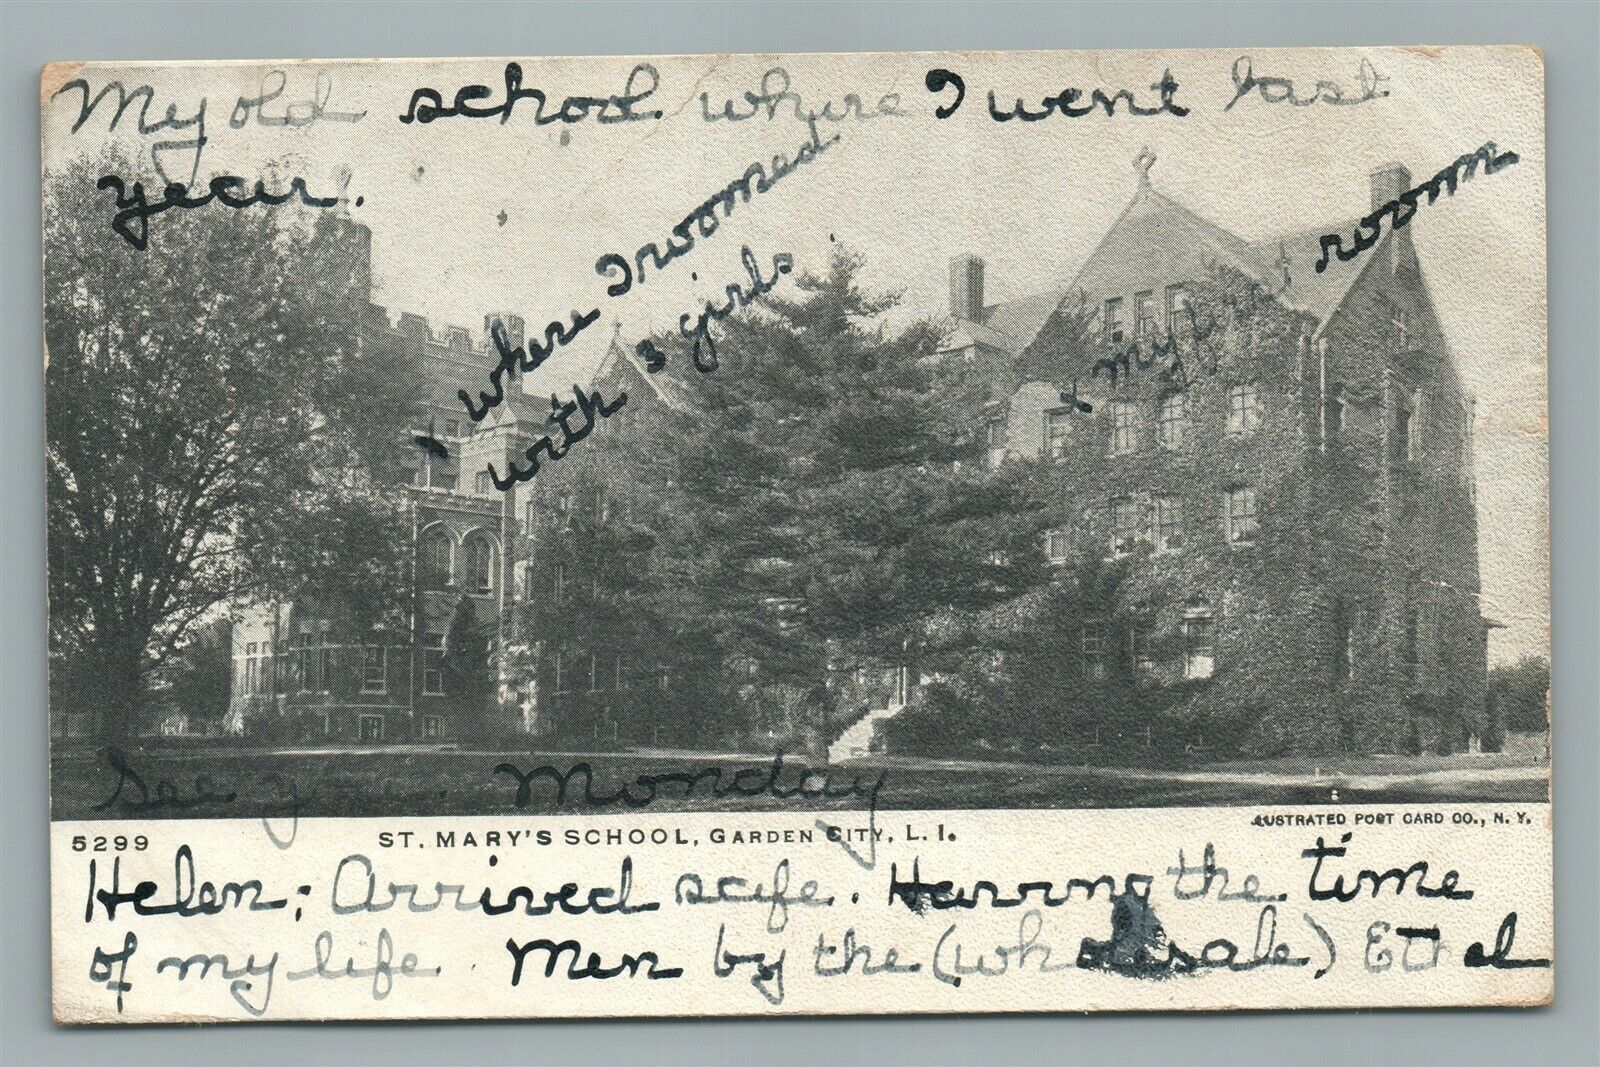 My old school where I went last
year.
x where I roomed
with 3 girls.
x my first room
See you Monday
5299
ST. MARY'S SCHOOL, GARDEN CITY, L. I.
LUSTRATED POST CARD CO., N. Y.
Helen; Arrived safe. Having the time
of my life. Men by the (wholesale) Ethel